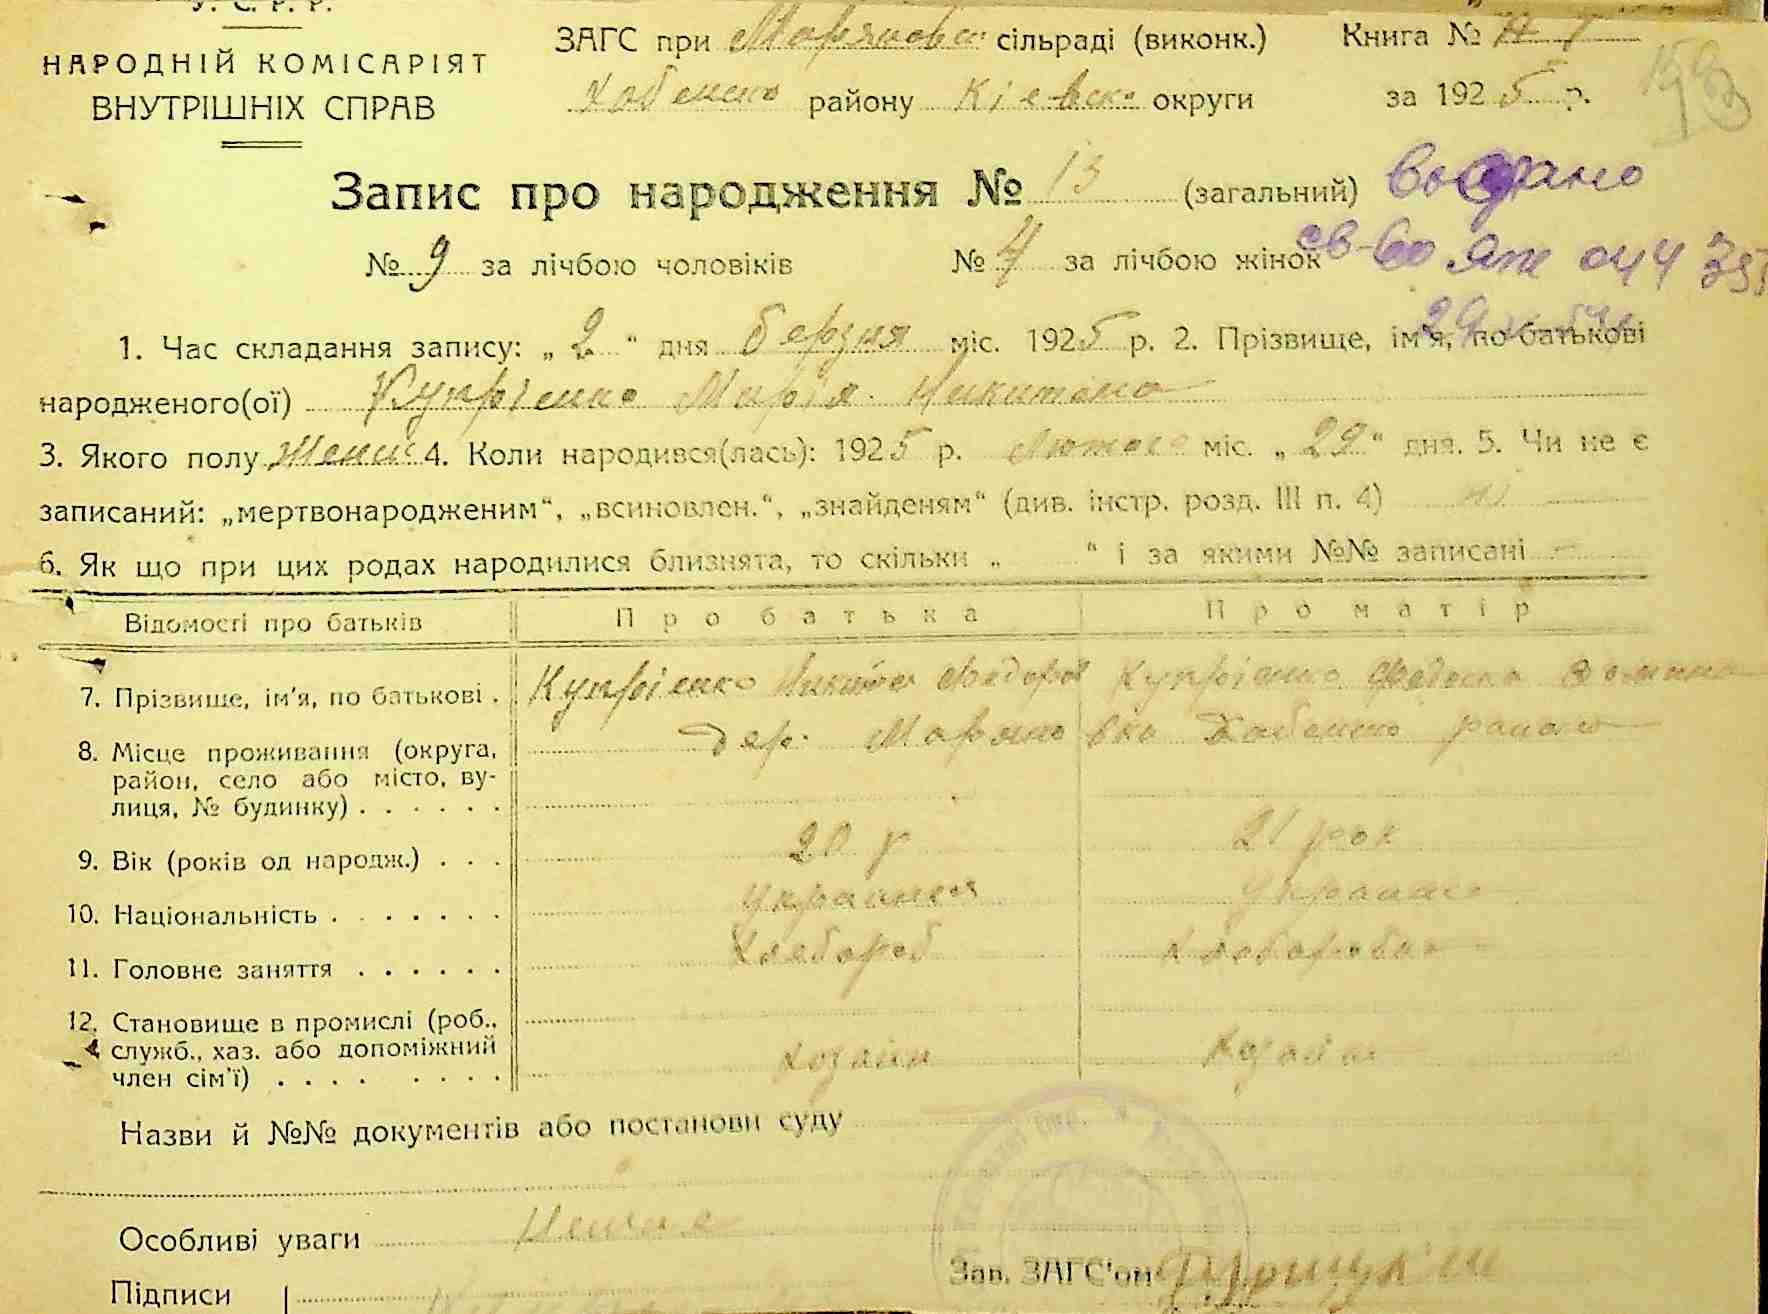 У. С. Р. Р.
НАРОДНІЙ КОМІСАРІЯТ
ВНУТРІШНІХ СПРАВ
ЗАГС при сільраді (виконк.) Книга №
Хабенско району Кіевско округи за 1925 р.
Запис про народження № 13 (загальний) Выдано
№ 9 за лічбою чоловіків № 4 за лічбою жінок св-во ЯТ 044
1. Час складання запису: „2“ дня берзня міс. 1925 р. 2. Прізвище, ім'я, по батькові
народженого(ої) Купрієнко Марія Никитовна
3. Якого полу Женск 4. Коли народився(лась): 1925 р. Лютого міс. „29“ дня. 5. Чи не є
записаний: „мертвонародженим“, „всиновлен.“, „знайденям“ (див. інстр. розд. III п. 4) ні
6. Як що при цих родах народилися близнята, то скільки „ “ і за якими №№ записані —
Відомості про батьків Про батька Про матір
7. Прізвище, ім'я, по батькові . Купрієнко Никита Федоров Купрієнко Федоска
8. Місце проживання (округа, район, село або місто, вулиця, № будинку) . . . . . . дер. Марьяновка Хабенско района
9. Вік (років од народж.) . . . 20 р 21 рок
10. Національність . . . . . . . Украинец Украинка
11. Головне заняття . . . . . . Хлебороб Хлеборобка
12. Становище в промислі (роб., служб., хаз. або допоміжний член сім'ї) . . . . . . . . Хозаин Хозайка
Назви й №№ документів або постанови суду
Особливі уваги
Зав. ЗАГС'ом
Підписи